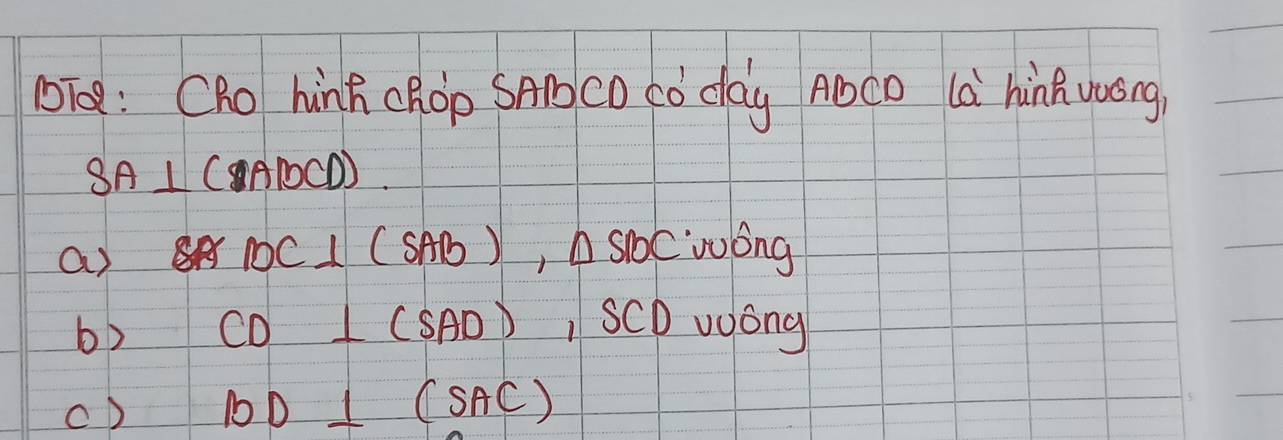 BT2: Cho hình chóp SABCD có đáy ABCD là hình vuông,
SA ⊥ (ABCD).
a) BC ⊥ (SAB), Δ SBC vuông
b) CD ⊥ (SAD), SCD vuông
c) BD ⊥ (SAC)